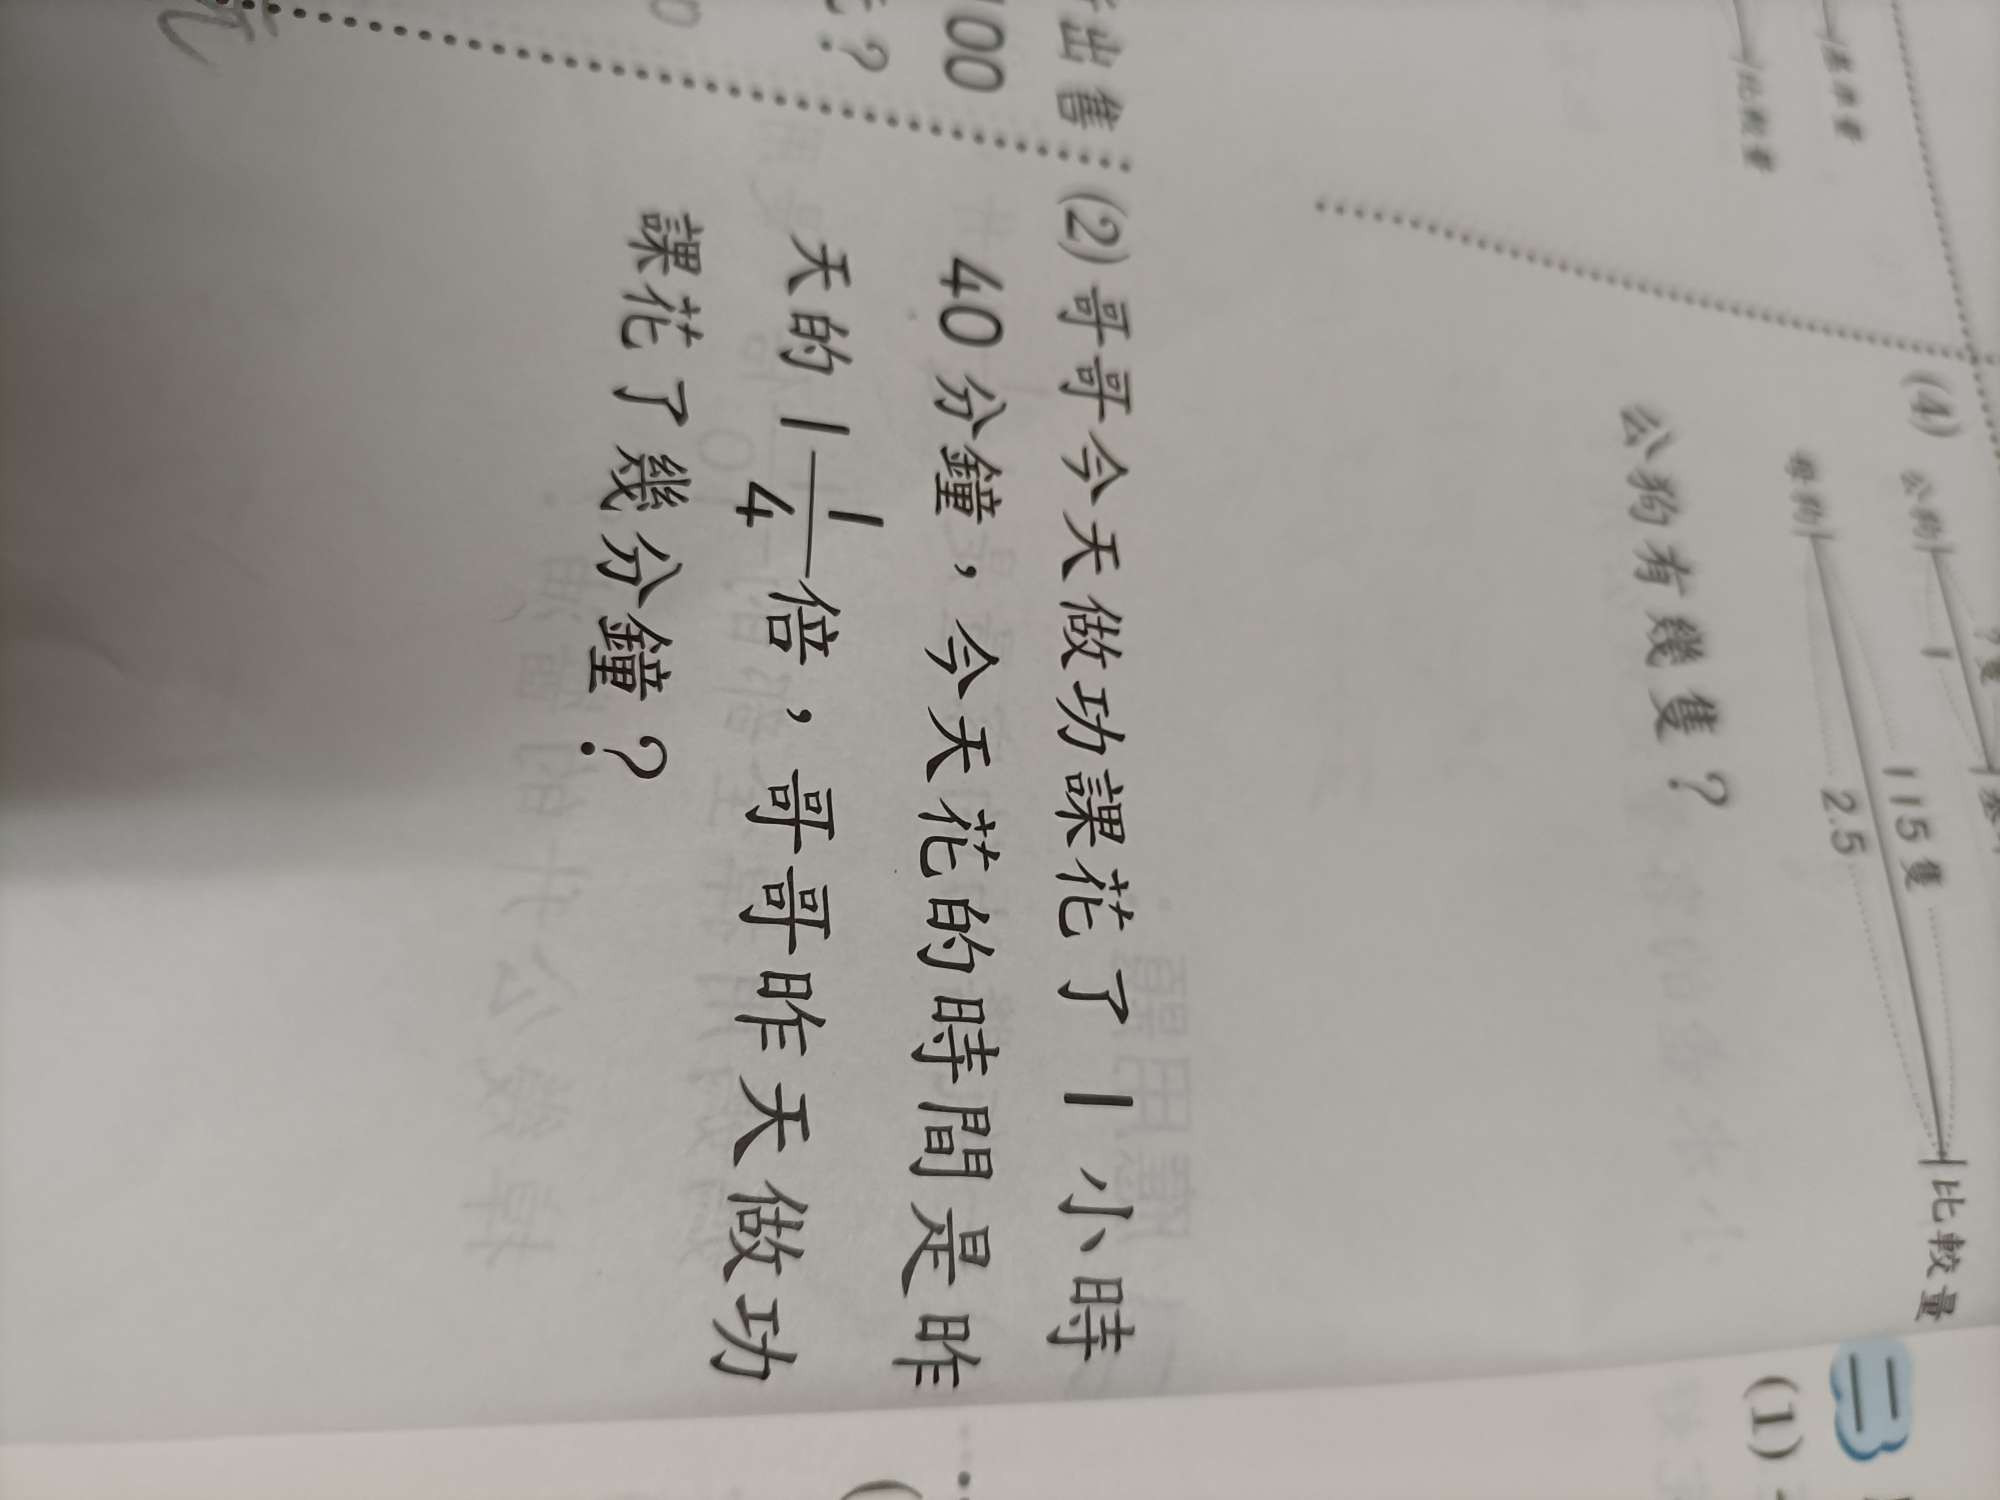 基準量
比較量
(4)
公狗
1
115隻
母狗
2.5
比較量
公狗有幾隻？
二
(1)
出售
100
？
0
元
(2)哥哥今天做功課花了1小時
40分鐘，今天花的時間是昨
天的1 1/4 倍，哥哥昨天做功
課花了幾分鐘？